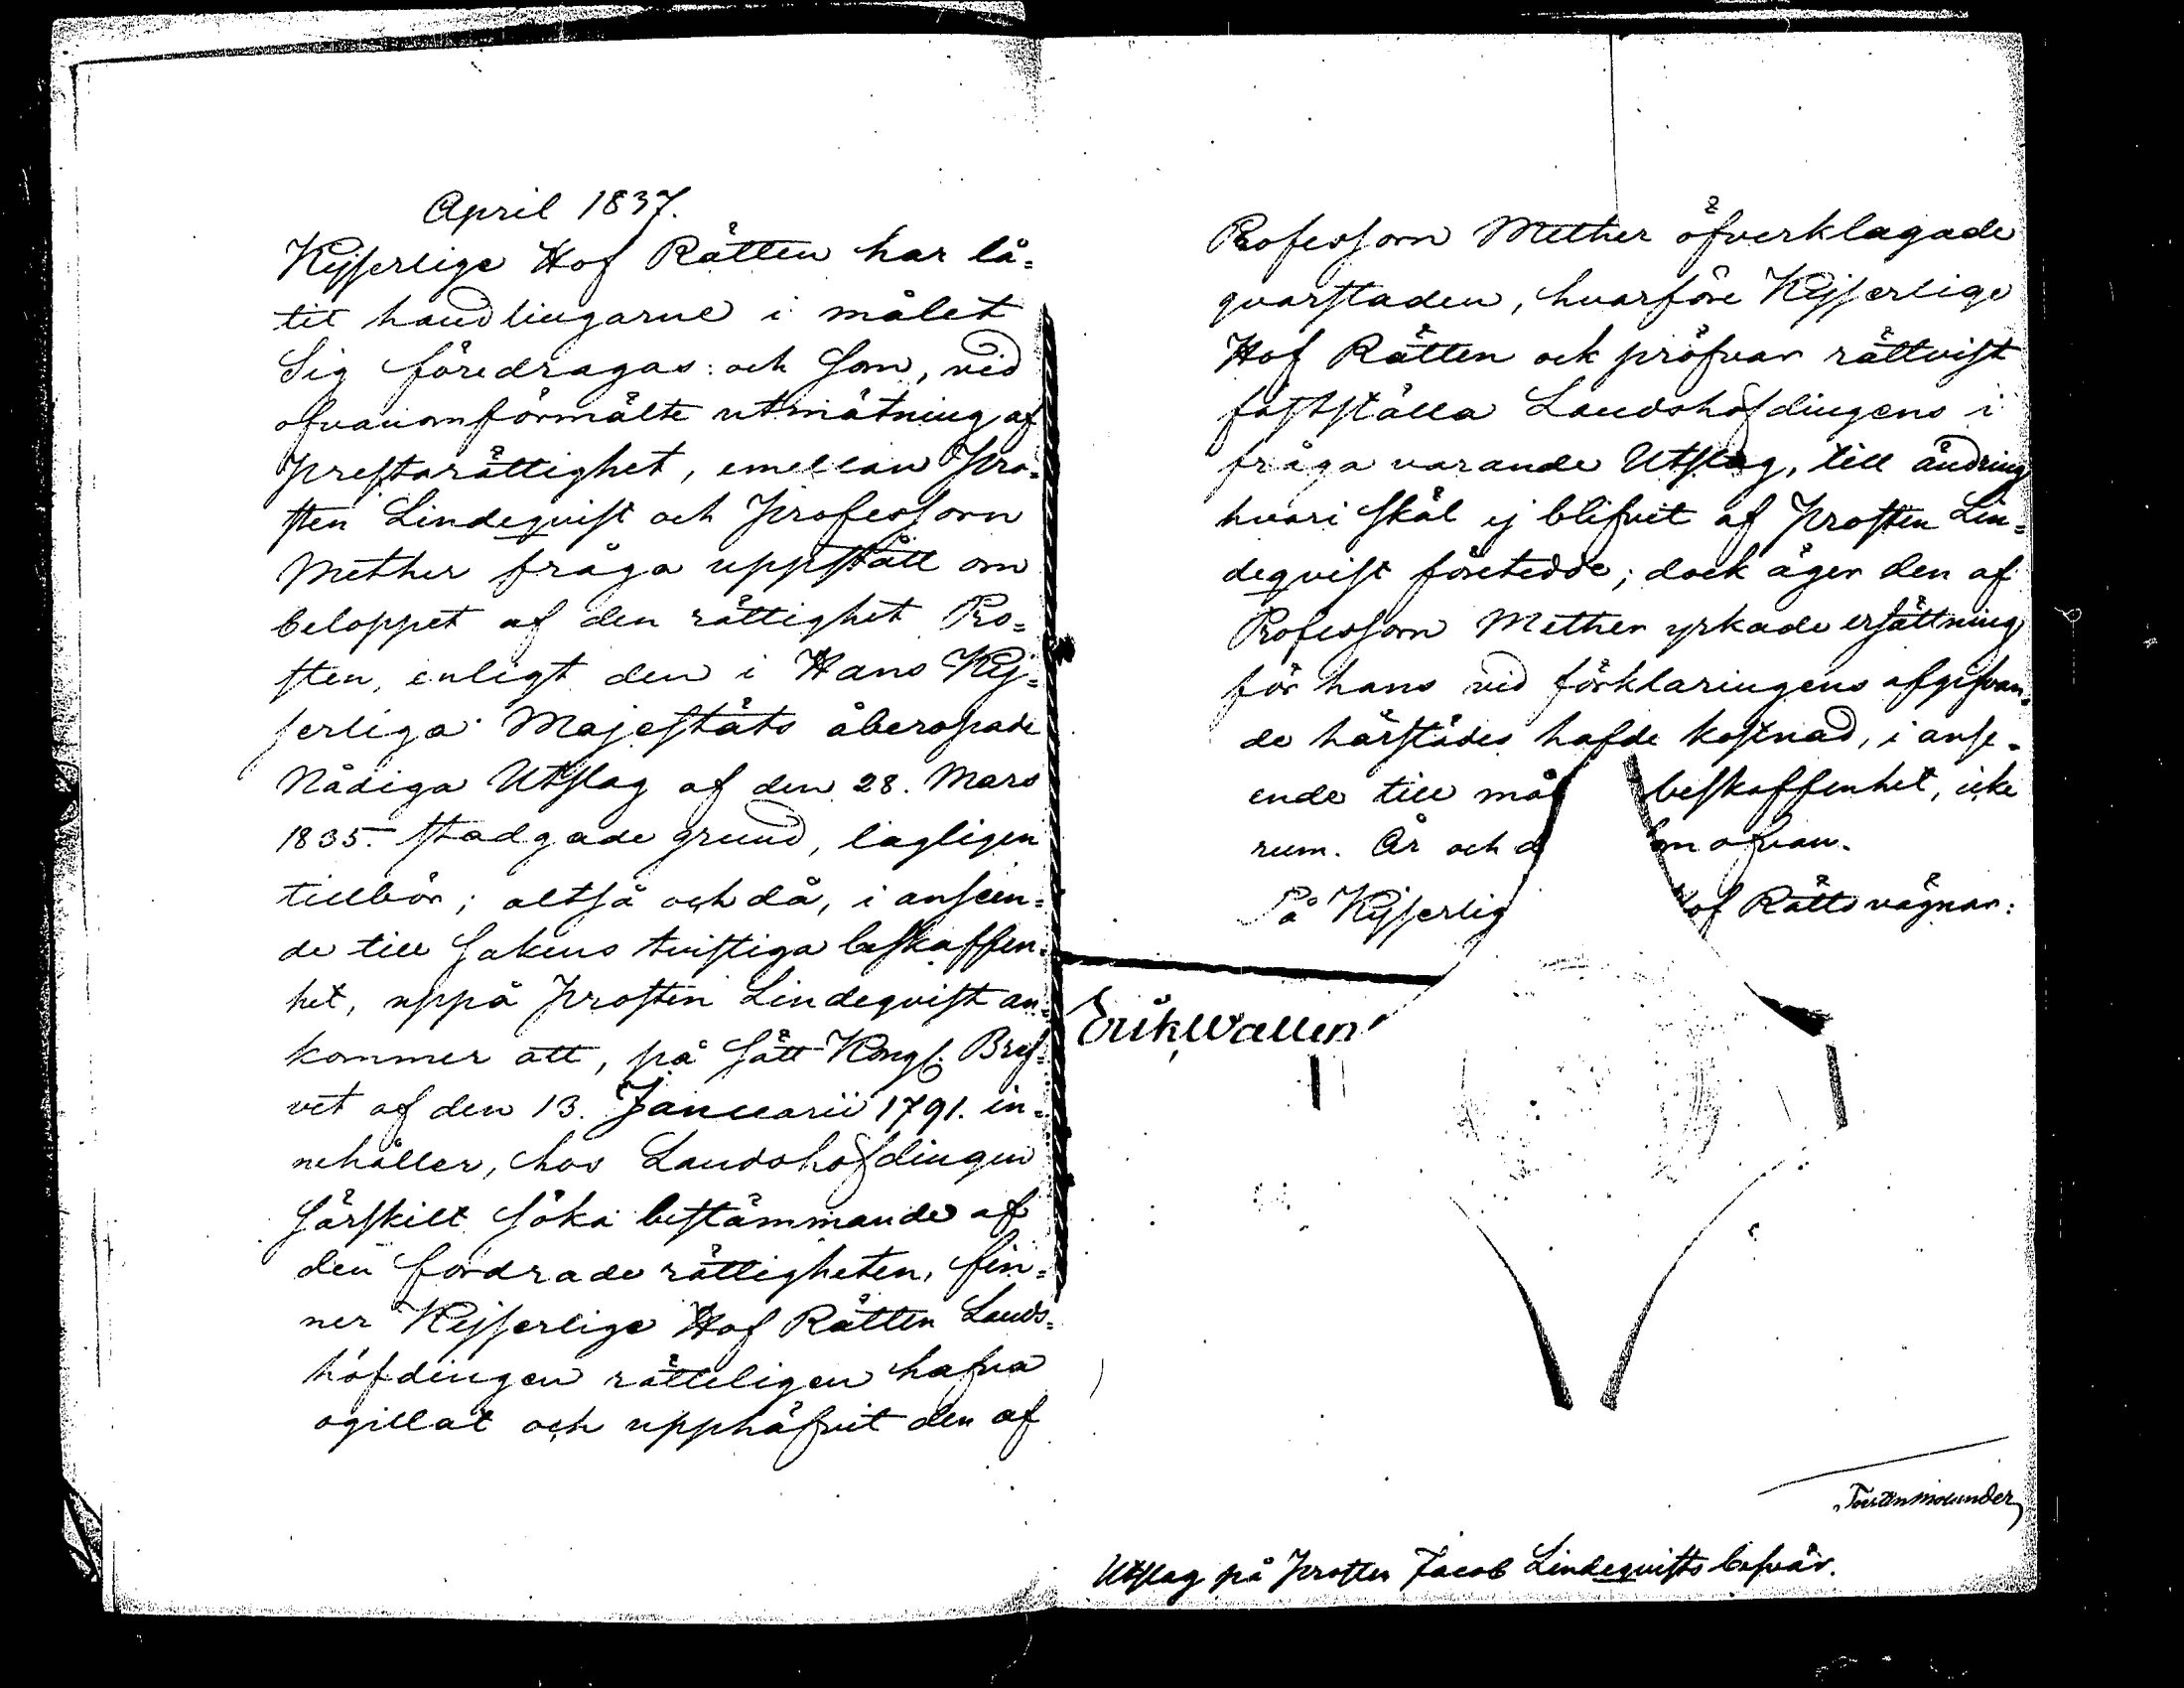 April 1837.
Kejserlige Hof Rätten har lå=
tit handlingarne i målet
Sig föredragas: och som, vid
ofvanomförmälte utmätning af
prestarättighet, emellan Pro=
sten Lindeqvist och Professorn
Mether fråga uppstått om
beloppet af den rättighet Pro=
sten, enligt den i Hans Kej=
serliga Majestäts åberopade
Nådiga Utslag af den 28. Mars
1835. stadgade grund, lagligen
tillbör; altså och då, i anseen=
de till sakens tvistiga beskaffen=
het, uppå Prosten Lindeqvist an=
kommer att, på sätt Kongl. Bref=
vet af den 13. Januarii 1791. in=
nehåller, hos Landshöfdingen
särskilt söka bestämmande af
den fordrade rättigheten, fin=
ner Kejserlige Hof Rätten Lands=
höfdingen rätteligen hafva
ogillat och upphäfvit den af
Professorn Mether öfverklagade
qvarstaden, hvarföre Kejserlige
Hof Rätten ock pröfvar rättvist
fastställa Landshöfdingens i
fråga varande Utslag, till ändring
hvari skäl ej blifvit af Prosten Lin=
deqvist företedde; dock äger den af
Professorn Mether yrkade ersättning
för hans vid förklaringens afgifvan=
de härstädes hafde kostnad, i anse=
ende till mål beskaffenhet, icke
rum. År och d om ofvan.
På Kejserlig Hof Rätts vägnar:
Erik Wallen
Torsten Molander
Utslag på Prosten Jacob Lindeqvists besvär.